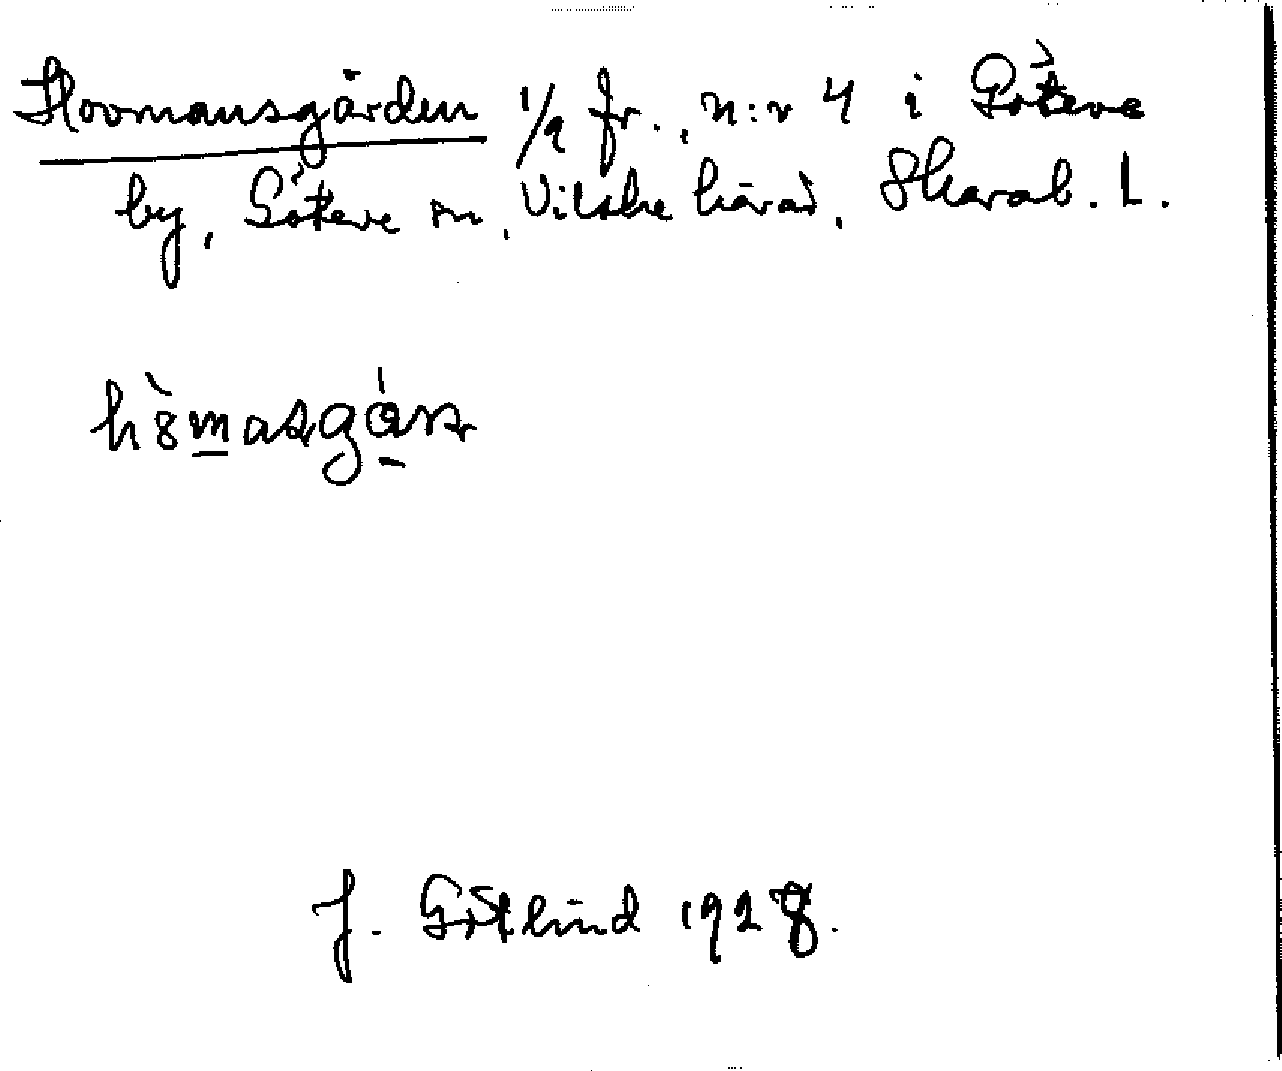 Hovmansgården 1/2 fr., n:r 4 i Göteve
by, Göteve sn, Vilske härad, Skarab. L.
J. Götlind 1928.